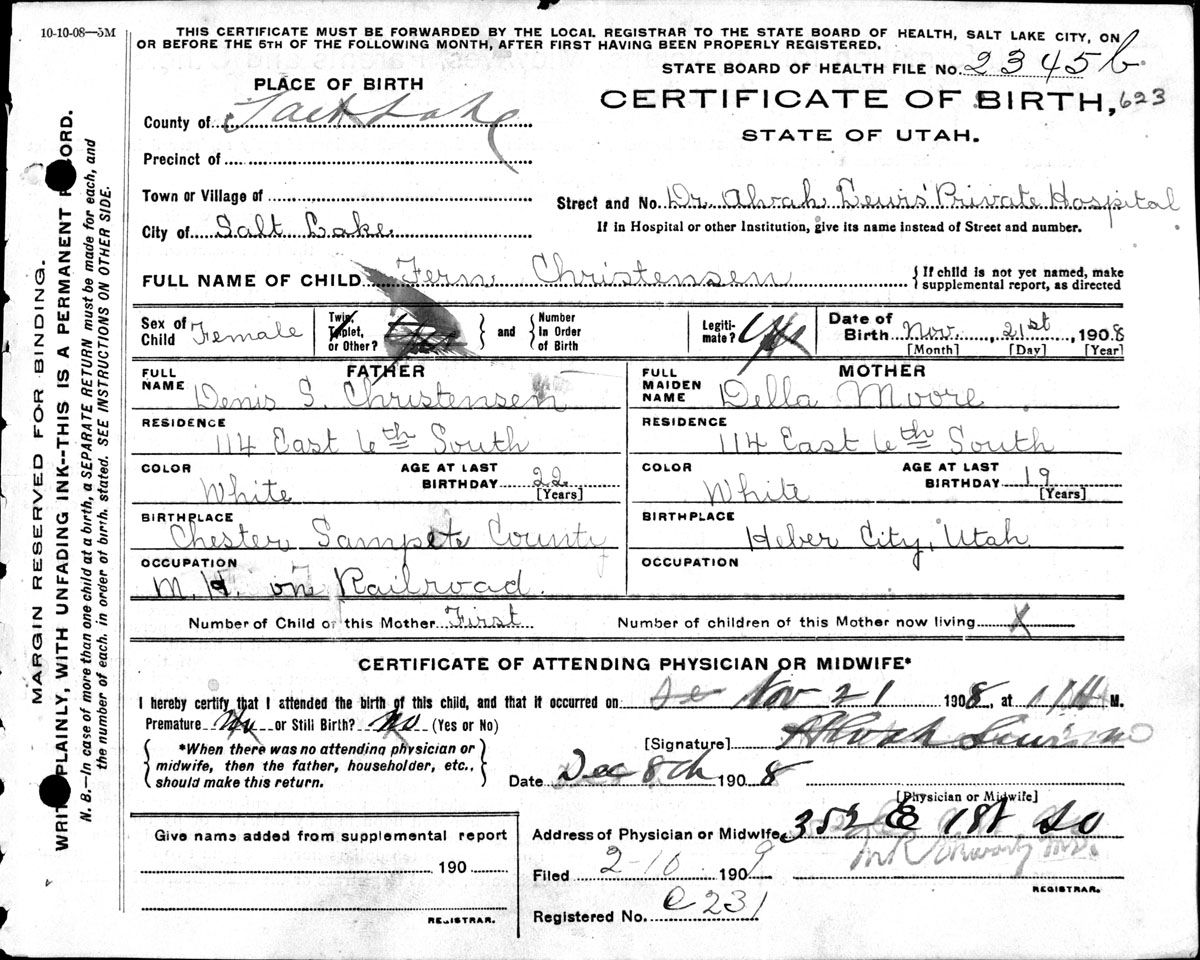 10-10-08—5M
THIS CERTIFICATE MUST BE FORWARDED BY THE LOCAL REGISTRAR TO THE STATE BOARD OF HEALTH, SALT LAKE CITY, ON
OR BEFORE THE 5TH OF THE FOLLOWING MONTH, AFTER FIRST HAVING BEEN PROPERLY REGISTERED.
STATE BOARD OF HEALTH FILE No. 2345b
PLACE OF BIRTH
CERTIFICATE OF BIRTH, 623
STATE OF UTAH.
County of Salt Lake
Precinct of
Town or Village of
Street and No. Dr. Alvah Lewis' Private Hospital
City of Salt Lake
If in Hospital or other Institution, give its name instead of Street and number.
FULL NAME OF CHILD Fern Christensen
{If child is not yet named, make
supplemental report, as directed
Sex of Child Female
Twin, Triplet, or Other?
and
Number In Order of Birth
Legiti-mate? Yes
Date of Birth Nov. 21st, 1908
[Month] [Day] [Year]
FATHER
FULL NAME Denis S. Christensen
RESIDENCE
114 East 6th South
COLOR White
AGE AT LAST BIRTHDAY 22
[Years]
BIRTHPLACE
Chester Sampete County
OCCUPATION
M. H. on Railroad.
MOTHER
FULL MAIDEN NAME Della Moore
RESIDENCE
114 East 6th South
COLOR White
AGE AT LAST BIRTHDAY 19
[Years]
BIRTHPLACE
Heber City, Utah
OCCUPATION
Number of Child of this Mother First
Number of children of this Mother now living X
CERTIFICATE OF ATTENDING PHYSICIAN OR MIDWIFE*
I hereby certify that I attended the birth of this child, and that it occurred on Nov 21 1908, at M.
Premature No or Still Birth? No (Yes or No)
*When there was no attending physician or
midwife, then the father, householder, etc.,
should make this return.
[Signature] Alvah Lewis MD
Date Dec 8th 1908
[Physician or Midwife]
Give name added from supplemental report
190
REGISTRAR.
Address of Physician or Midwife 352 E 1st So
Filed 2-10 1909
REGISTRAR.
Registered No. C 231
MARGIN RESERVED FOR BINDING.
WRITE PLAINLY, WITH UNFADING INK--THIS IS A PERMANENT RECORD.
N. B.—In case of more than one child at a birth, a SEPARATE RETURN must be made for each, and
the number of each, in order of birth, stated. SEE INSTRUCTIONS ON OTHER SIDE.